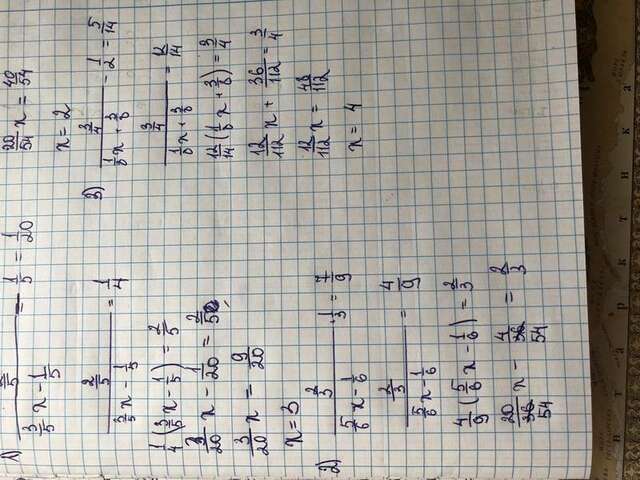 1) (2/5)/(3/5 x - 1/5) - 1/5 = 1/20
(2/5)/(3/5 x - 1/5) = 1/4
1/4 (3/5 x - 1/5) = 2/5
3/20 x - 1/20 = 2/5
3/20 x = 9/20
x = 3
2) (2/3)/(5/6 x - 1/6) 1/3 = 7/9
(2/3)/(5/6 x - 1/6) = 4/9
4/9 (5/6 x - 1/6) = 2/3
20/54 x - 4/54 = 2/3
20/54 x = 40/54
x = 2
3) (3/4)/(1/8 x + 3/8) - 1/2 = 5/14
(3/4)/(1/8 x + 3/8) = 12/14
12/14 (1/8 x + 3/8) = 3/4
12/112 x + 36/112 = 3/4
12/112 x = 48/112
x = 4